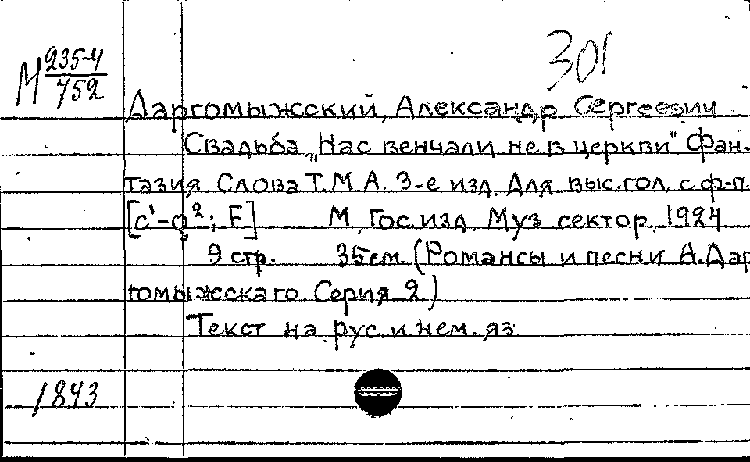 301
М 235-4
752
Даргомыжский, Александр Сергеевич
Свадьба „Нас венчали не в церкви" Фан-
тазия. Слова Т.М.А. 3-е изд. Для выс. гол. с ф-п.
[c¹-g²; F] М., Гос. изд. Муз. сектор, 1924
9 стр. 35 см. (Романсы и песни А. Дар
гомыжскаго. Серия 2)
Текст на рус. и нем. яз.
1843